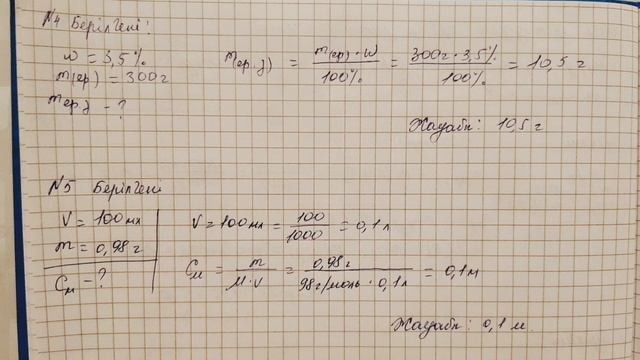 №4 Берілгені:
w = 3,5%
m(ер) = 300г
m(ер.з) = m(ер)·w / 100% = 300г·3,5% / 100% = 10,5 г
mер.з - ?
Жауабы: 10,5 г
№5 Берілгені
V = 100 мл
V = 100мл = 100/1000 = 0,1 л
m = 0,98 г
Cм = m / M·V = 0,98 г / 98г/моль · 0,1л = 0,1м
Cм - ?
Жауабы: 0,1 м.